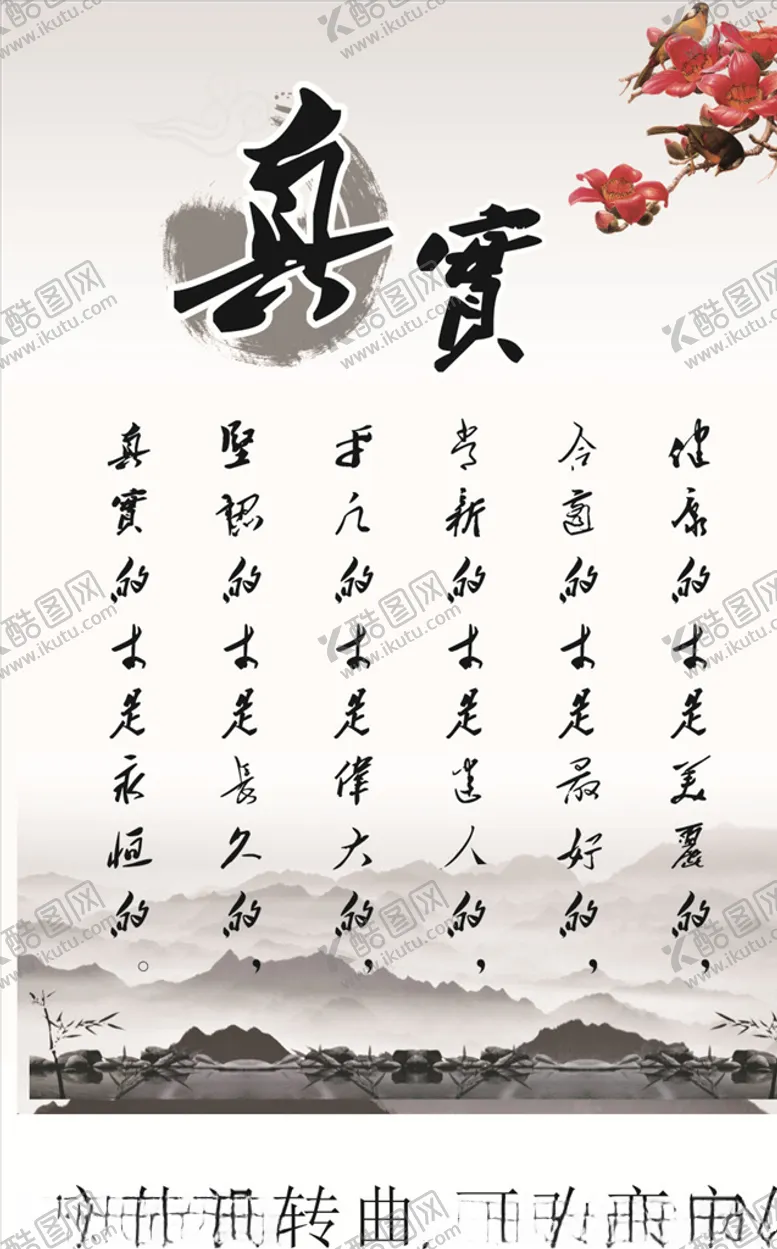 真實
健康的才是美麗的，
合適的才是最好的，
常新的才是迷人的，
平凡的才是偉大的，
堅認的才是長久的，
真實的才是永恒的。
转曲
酷图网
www.ikutu.com